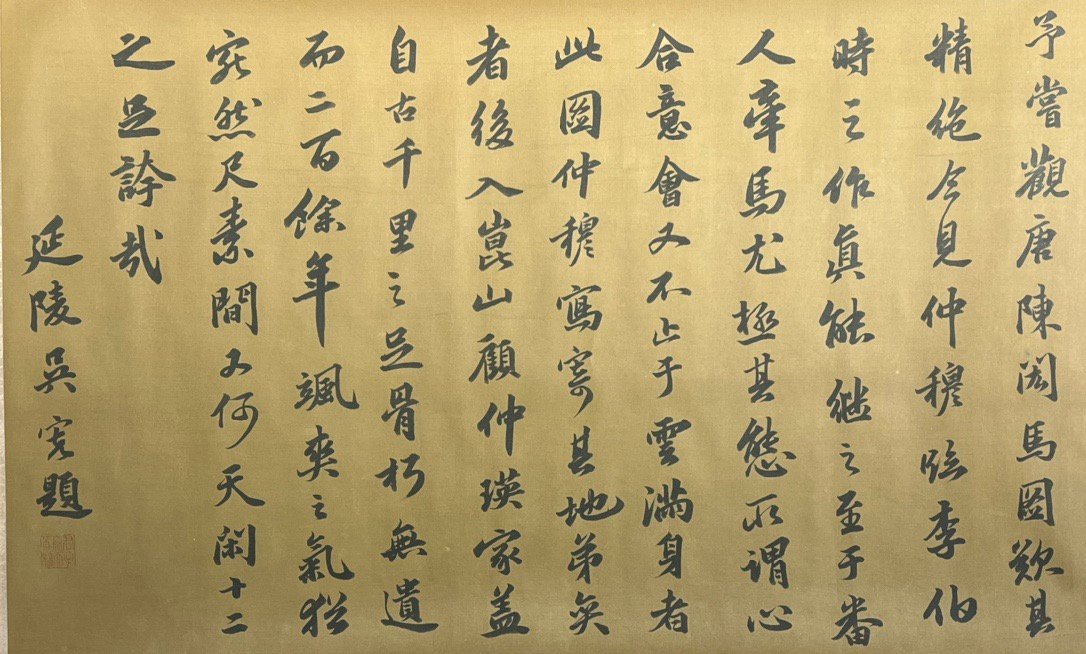 予嘗觀唐陳閎馬圖歎其
精絶今見仲穆臨李伯
時之作真能继之至于番
人牽馬尤極其態所謂心
合意會又不止于雲滿身者
此圖仲穆寫寄其地弟奕
者後入崑山顧仲瑛家盖
自古千里之足骨朽無遺
而二百餘年颯爽之氣猶
宛然尺素間又何天閑十二
之足誇哉
延陵吳寬題